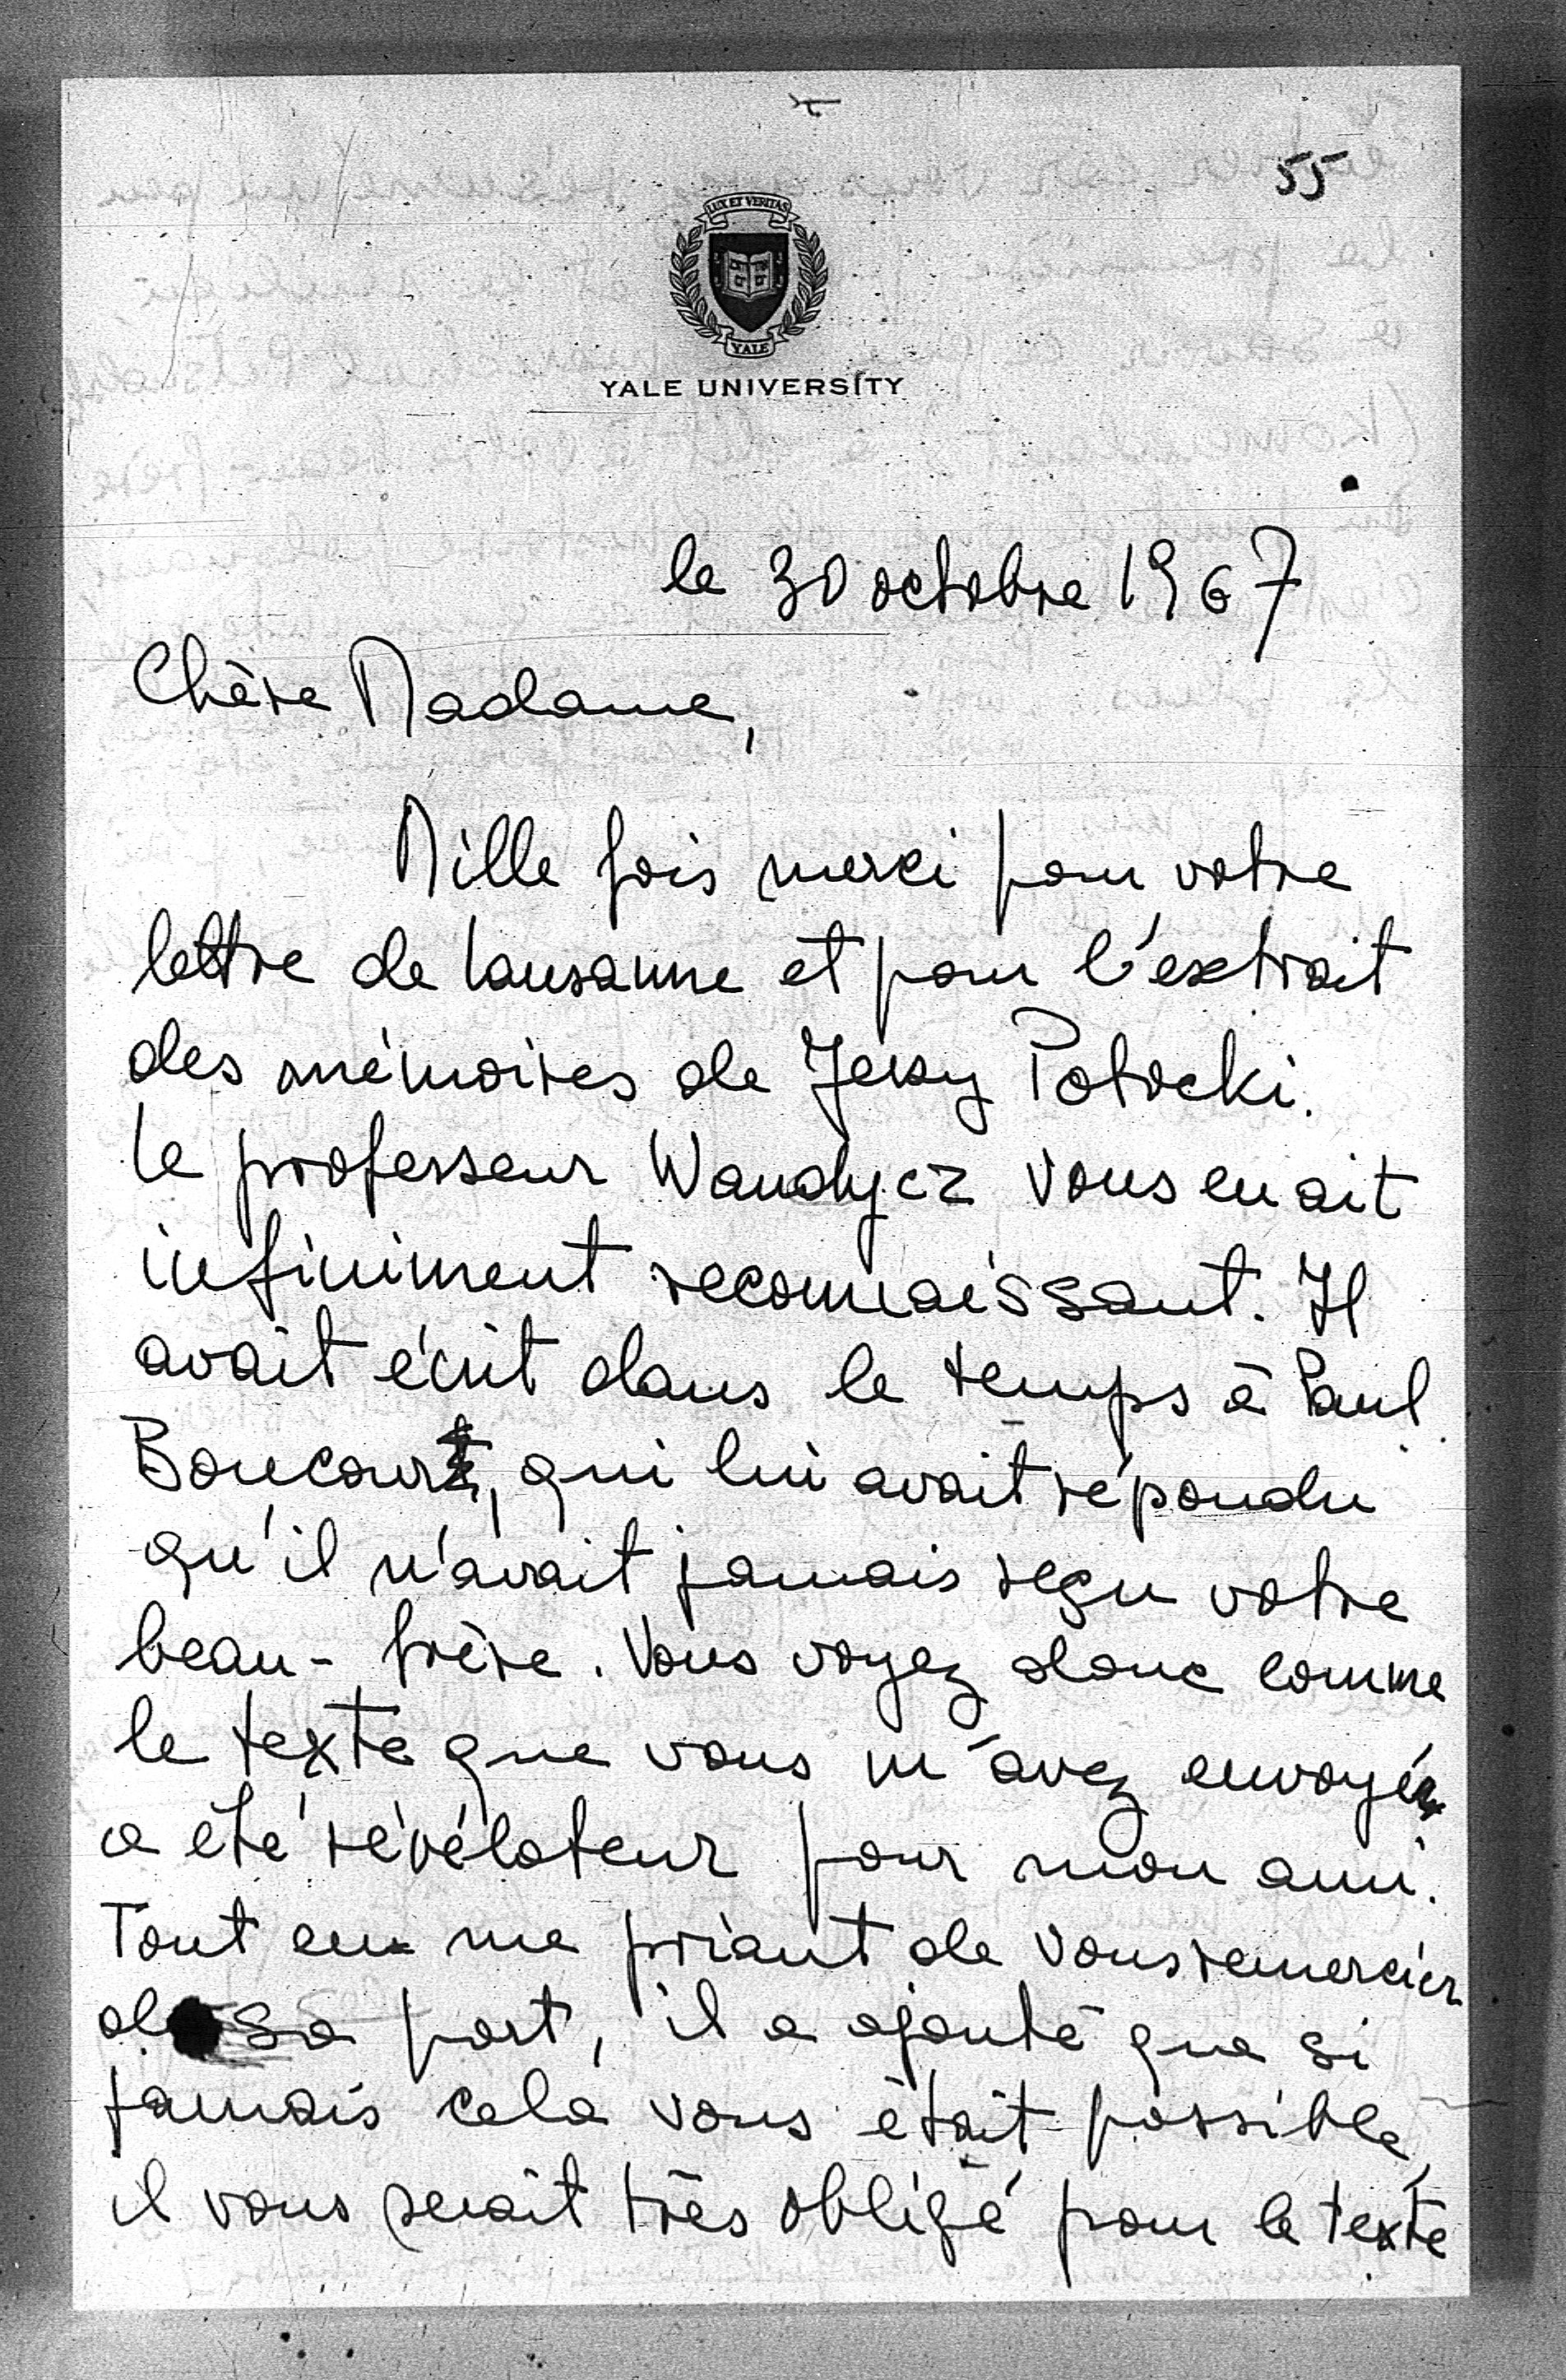 55
LUX ET VERITAS
YALE
YALE UNIVERSITY
le 30 octobre 1967
Chère Madame,
Mille fois merci pour votre
lettre de Lausanne et pour l'extrait
des mémoires de Jerzy Potocki.
Le professeur Wandycz vous en ait
infiniment reconnaissant. Il
avait écrit dans le temps à Paul
Boncour, qui lui avait répondu
qu'il n'avait jamais reçu votre
beau-frère. Vous voyez donc comme
le texte que vous m'avez envoyé
a été révélateur pour mon ami.
Tout en me priant de vous remercier
de sa part, il a ajouté que si
jamais cela vous était possible,
il vous serait très obligé pour le texte